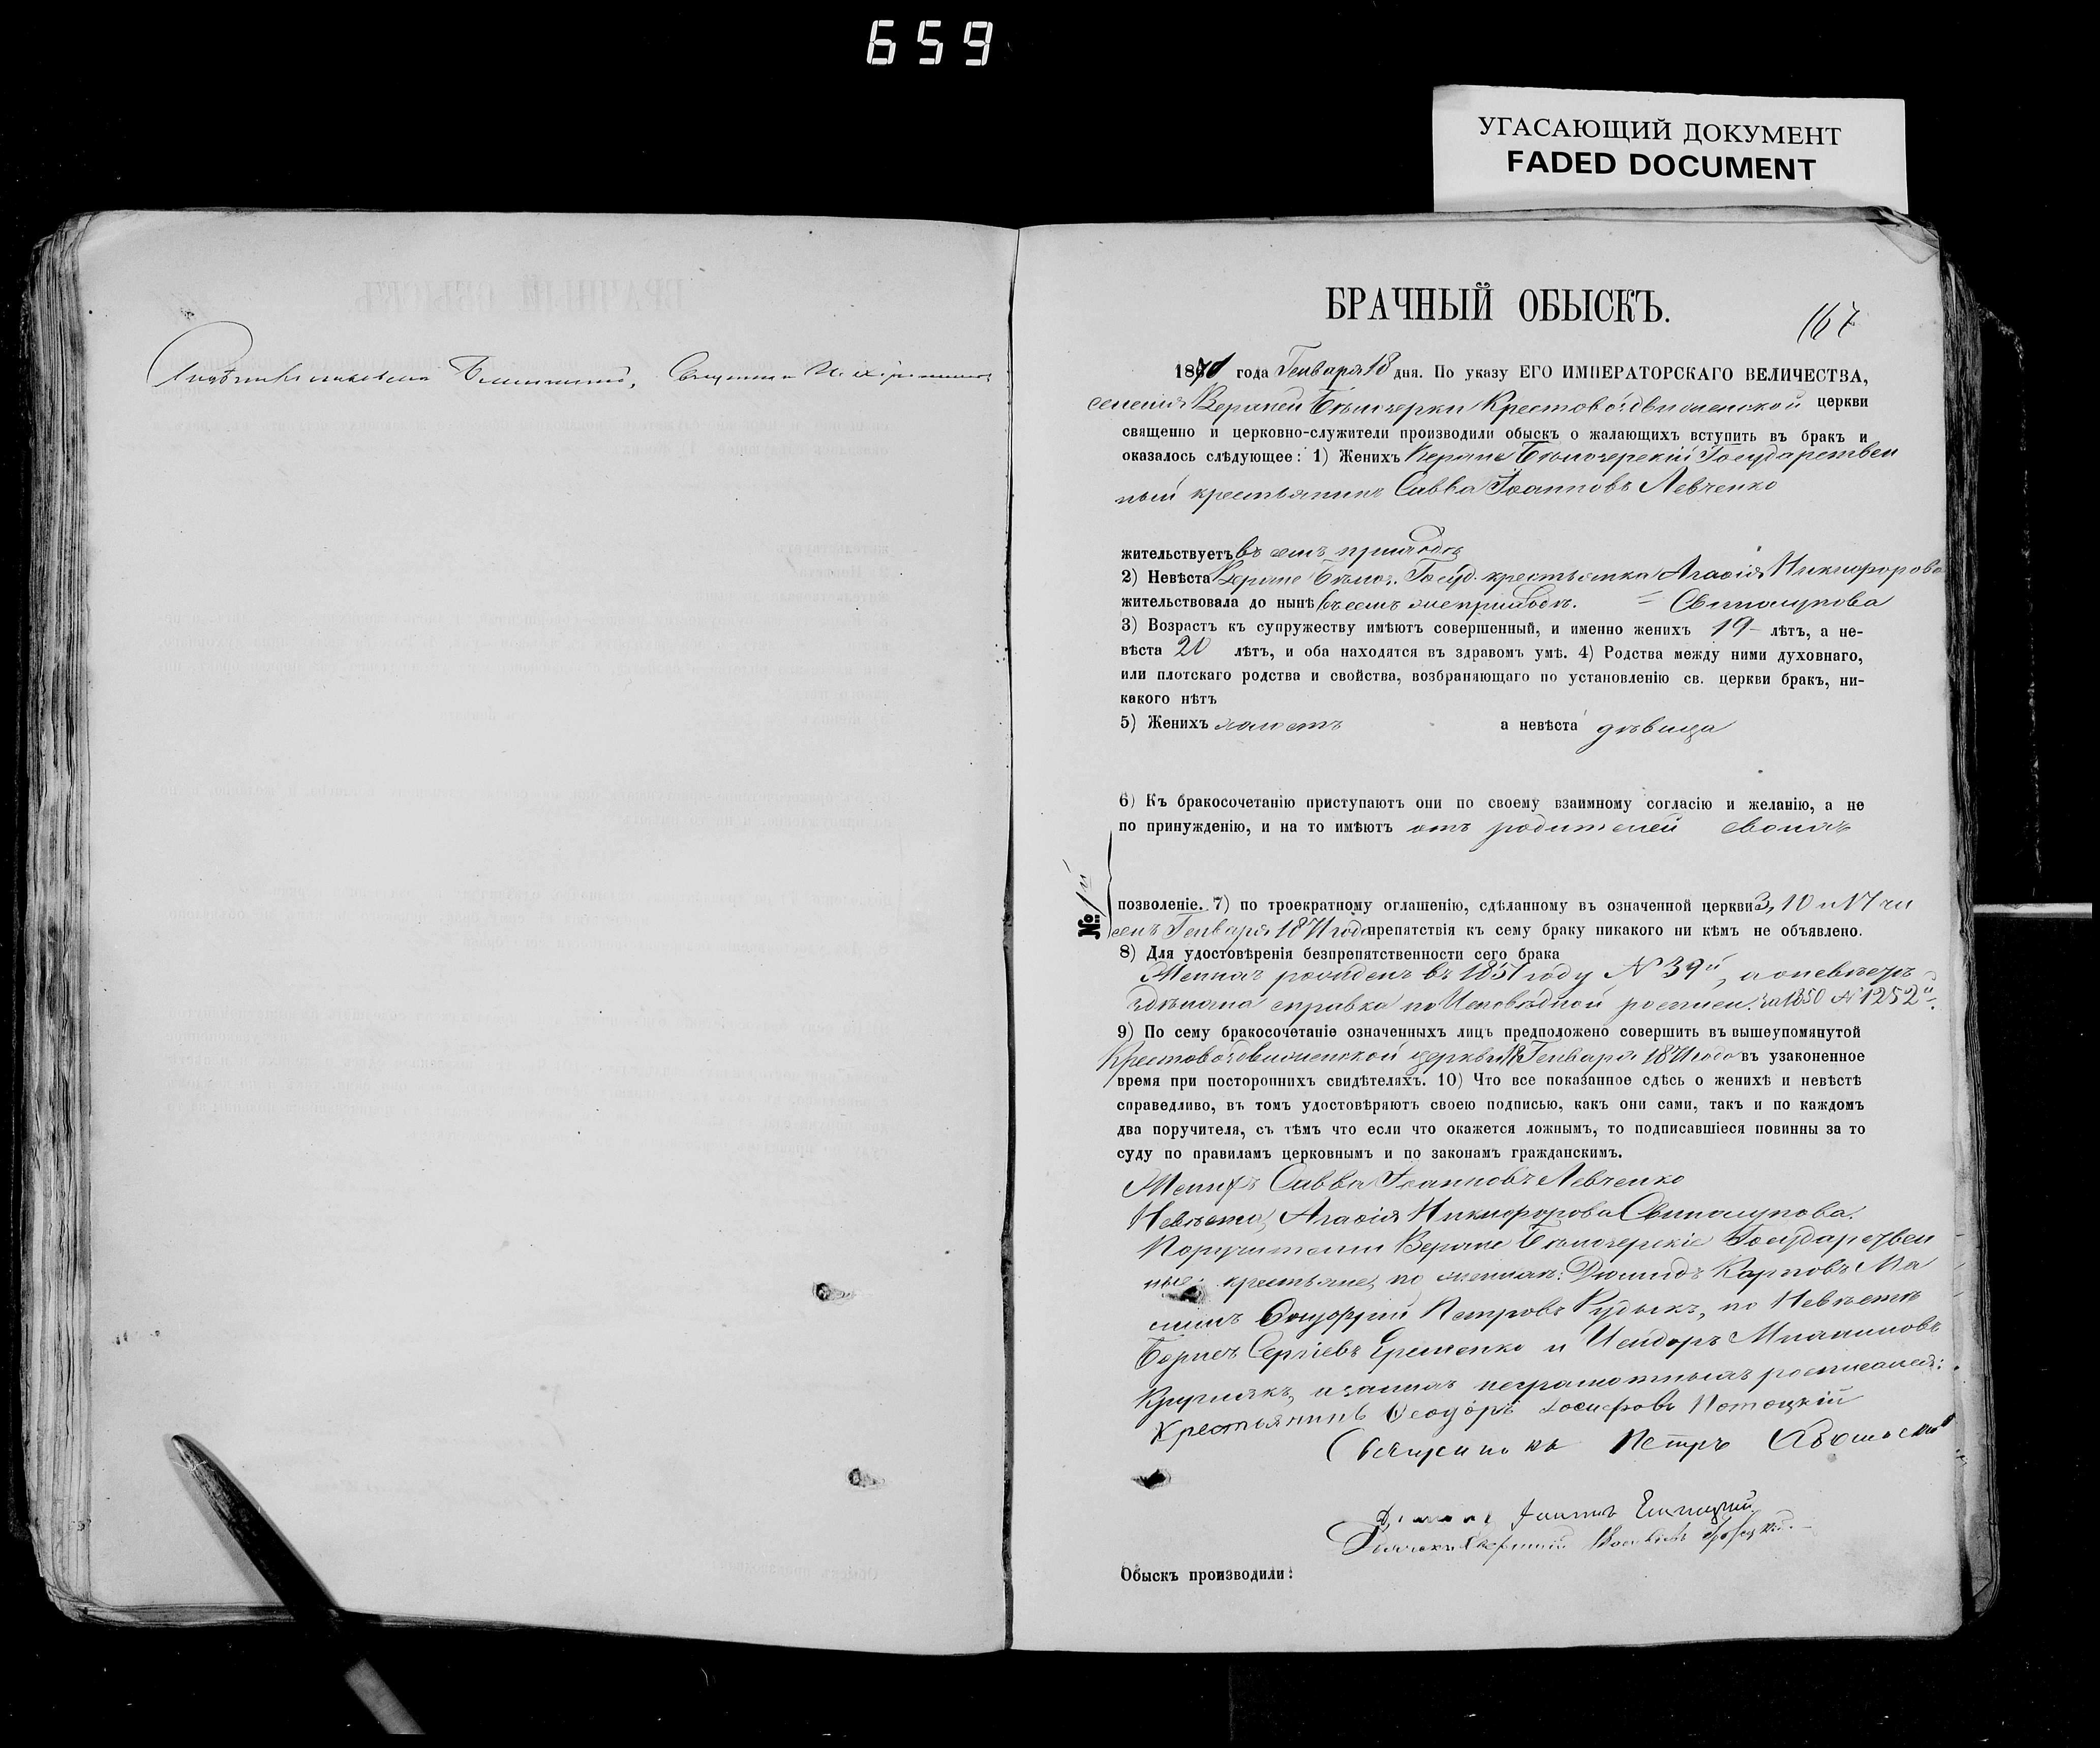 659
УГАСАЮЩИЙ ДОКУМЕНТ
FADED DOCUMENT
БРАЧНЫЙ ОБЫСКЪ.
167
1871 года Генваря 18 дня. По указу ЕГО ИМПЕРАТОРСКАГО ВЕЛИЧЕСТВА,
селенія Верхней Бѣлозерки Крестовоздвиженской церкви
священно и церковно-служители производили обыскъ о жалающихъ вступить въ бракъ и
оказалось слѣдующее: 1) Женихъ Верхне Бѣлозерскій Государствен
ный крестьянинъ Савва Іоанновъ Левченко
жительствуетъ въ семъ приходѣ
2) Невѣста Верхне Бѣлоз. Госуд. крестьянка Агаѳія Никифорова
жительствовала до нынѣ въ семъ же приходѣ. = Свиноцупова
3) Возрастъ къ супружеству имѣютъ совершенный, и именно женихъ 19 лѣтъ, а не-
вѣста 20 лѣтъ, и оба находятся въ здравомъ умѣ. 4) Родства между ними духовнаго,
или плотскаго родства и свойства, возбраняющаго по установленію св. церкви бракъ, ни-
какого нѣтъ
5) Женихъ холостъ а невѣста дѣвица
6) Къ бракосочетанію приступаютъ они по своему взаимному согласію и желанію, а не
по принужденію, и на то имѣютъ отъ родителей своихъ
№ 1й
позволеніе. 7) по троекратному оглашенію, сдѣланному въ означенной церкви 3, 10 и 17 чи
селъ Генваря 1871 года препятствія къ сему браку никакого ни кѣмъ не объявлено.
8) Для удостовѣренія безпрепятственности сего брака
Женихъ рожденъ въ 1851 году № 39й, а о невѣстѣ
здѣлана справка по Исповѣдной росписи за 1850 № 1252й.
9) По сему бракосочетаніе означенныхъ лицъ предположено совершить въ вышеупомянутой
Крестовоздвиженской церкви 18 Генваря 1871 года въ узаконенное
время при постороннихъ свидѣтеляхъ. 10) Что все показанное сдѣсь о женихѣ и невѣстѣ
справедливо, въ томъ удостовѣряютъ своею подписью, какъ они сами, такъ и по каждомъ
два поручителя, съ тѣмъ что если что окажется ложнымъ, то подписавшіеся повинны за то
суду по правиламъ церковнымъ и по законамъ гражданскимъ.
Женихъ Савва Іоанновъ Левченко
Невѣста, Агаѳія Никифорова Свиноцупова.
Поручители Верхне Бѣлозерскіе Государствен
ные крестьяне, по женихѣ: Діомидъ Карповъ
Петровъ Рудыкъ, по Невѣстѣ
Борисъ Сергіевъ Ерещенко и Исидоръ
Кругликъ, а за нихъ неграмотныхъ росписался:
Крестьянинъ Ѳеодоръ Іосифовъ Потоцкій
Священникъ Петръ
Іоаннъ
Обыскъ производили: